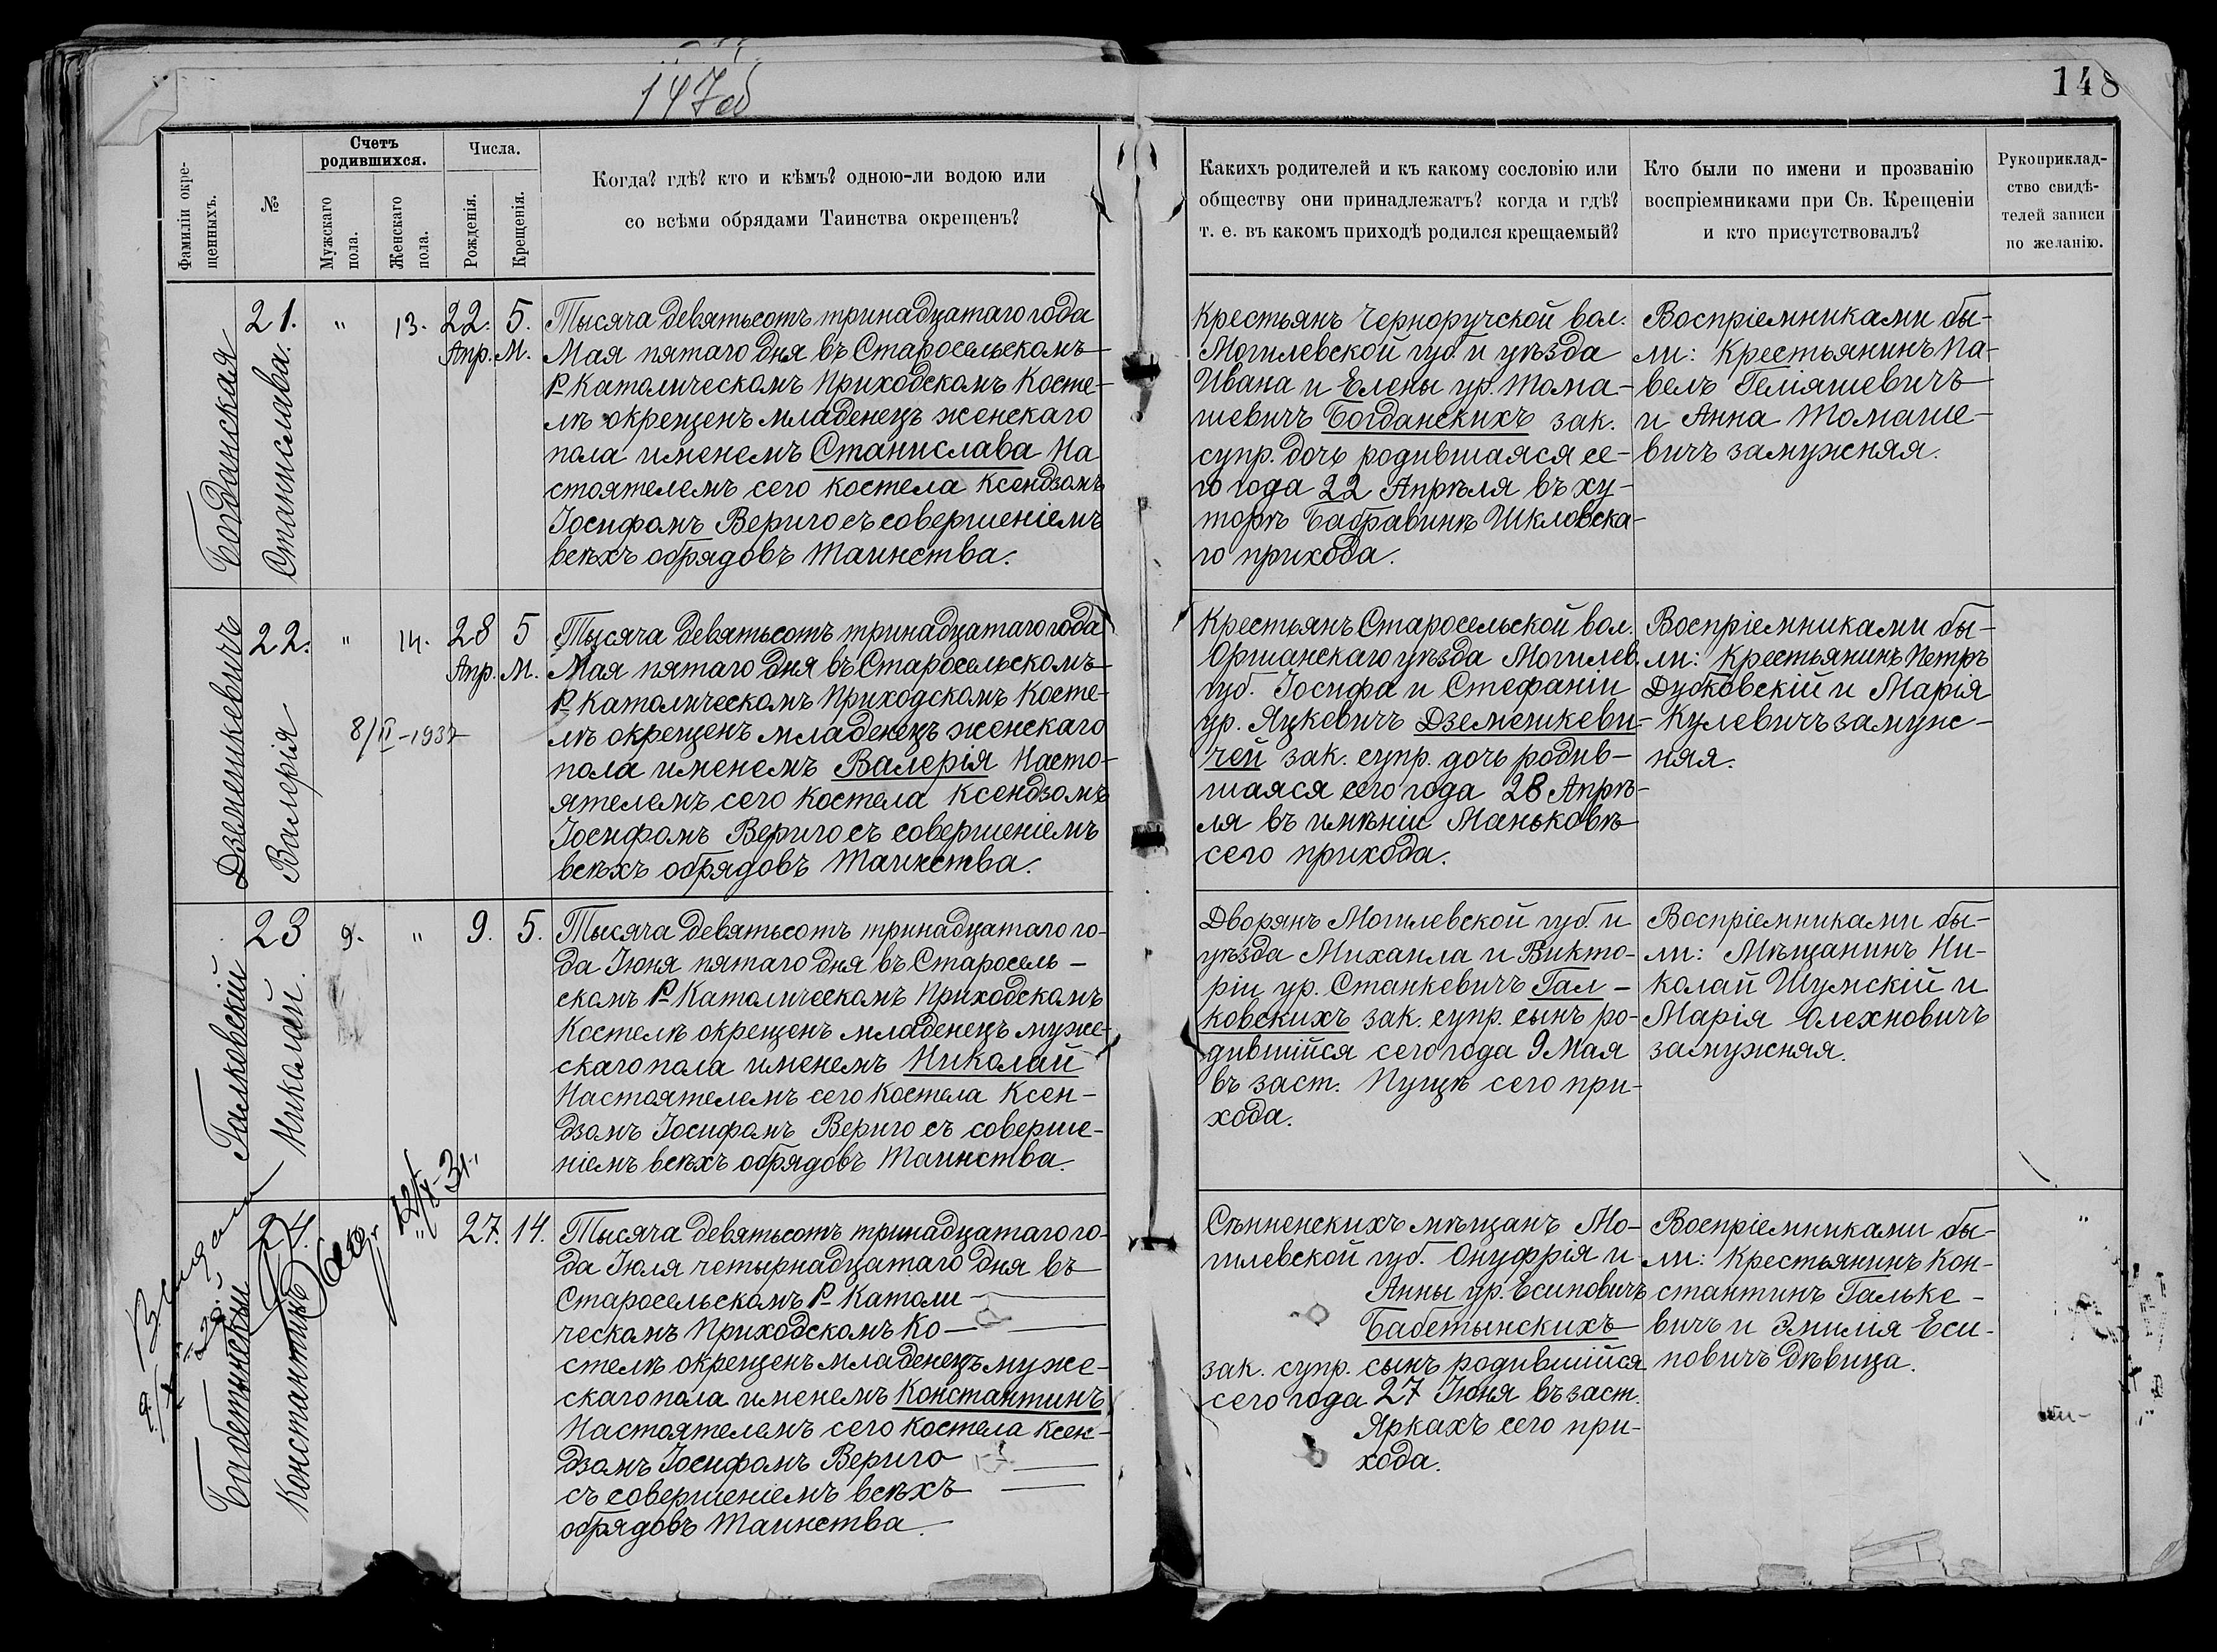 147об
148
Фамиліи окре-
щенныхъ.
№
Счетъ
родившихся.
Мужскаго
пола.
Женскаго
пола.
Числа.
Рожденія.
Крещенія.
Когда? гдѣ? кто и кѣмъ? одною-ли водою или
со всѣми обрядами Таинства окрещенъ?
Какихъ родителей и къ какому сословію или
обществу они принадлежатъ? когда и гдѣ?
т. е. въ какомъ приходѣ родился крещаемый?
Кто были по имени и прозванію
воспріемниками при Св. Крещеніи
и кто присутствовалъ?
Рукоприклад-
ство свидѣ-
телей записи
по желанію.
Богданская
Станислава.
21. " 13. 22. 5.
Апр. М.
Тысяча девятьсотъ тринадцатаго года
Мая пятаго дня въ Старосельскомъ
Р. Католическомъ Приходскомъ Косте-
лѣ окрещенъ младенецъ женскаго
пола именемъ Станислава На
стоятелемъ сего Костела Ксендзомъ
Іосифомъ Вериго съ совершеніемъ
всѣхъ обрядовъ Таинства.
Крестьянъ Черноручской вол.
Могилевской губ. и уѣзда
Ивана и Елены ур. Тома-
шевичъ Богданскихъ зак.
супр. дочь родившаяся се-
го года 22 Апрѣля въ ху-
торѣ Бабравинѣ Шкловска-
го прихода.
Воспріемниками бы-
ли: Крестьянинъ Па-
велъ Геліяшевичъ
и Анна Томаше-
вичъ замужняя.
Дземешкевичъ
Валерія
22. " 14. 28 5
Апр. М.
8/II-1937
Тысяча девятьсотъ тринадцатаго года
Мая пятаго дня въ Старосельскомъ
Р. Католическомъ Приходскомъ Косте-
лѣ окрещенъ младенецъ женскаго
пола именемъ Валерія Насто-
ятелемъ сего Костела Ксендзомъ
Іосифомъ Вериго съ совершеніемъ
всѣхъ обрядовъ Таинства.
Крестьянъ Старосельской вол.
Оршанскаго уѣзда Могилев.
губ. Іосифа и Стефаніи
ур. Яцкевичъ Дземешкеви-
чей зак. супр. дочь родив-
шаяся сего года 28 Апрѣ-
ля въ имѣніи Маньковѣ
сего прихода.
Воспріемниками бы-
ли: Крестьянинъ Петръ
Дубковскій и Марія
Кулевичъ замуж-
няя.
Галковскій
Николай.
23 9. " 9. 5.
Тысяча девятьсотъ тринадцатаго го-
да Іюня пятаго дня въ Старосель-
скомъ Р. Католическомъ Приходскомъ
Костелѣ окрещенъ младенецъ муже-
скаго пола именемъ Николай
Настоятелемъ сего Костела Ксен-
дзомъ Іосифомъ Вериго съ соверше-
ніемъ всѣхъ обрядовъ Таинства.
Дворянъ Могилевской губ. и
уѣзда Михаила и Викто-
ріи ур. Станкевичъ Гал-
ковскихъ зак. супр. сынъ ро-
дившійся сего года 9 Мая
въ заст. Пущѣ сего при-
хода.
Воспріемниками бы-
ли: Мѣщанинъ Ни-
колай Шумскій и
Марія Олехновичъ
замужняя.
Бабетынскій
Константинъ
24. " 27. 14.
Тысяча девятьсотъ тринадцатаго го-
да Іюля четырнадцатаго дня въ
Старосельскомъ Р. Католи-
ческомъ Приходскомъ Ко-
стелѣ окрещенъ младенецъ муже-
скаго пола именемъ Константинъ
Настоятелемъ сего Костела Ксен-
дзомъ Іосифомъ Вериго
съ совершеніемъ всѣхъ
обрядовъ Таинства.
Сѣнненскихъ мѣщанъ Мо-
гилевской губ. Онуфрія и
Анны ур. Есиповичъ
Бабетынскихъ
зак. супр. сынъ родившійся
сего года 27 Іюня въ заст.
Яркахъ сего при-
хода.
Воспріемниками бы-
ли: Крестьянинъ Кон-
стантинъ Галько-
вичъ и Эмилія Еси-
повичъ дѣвица.
"